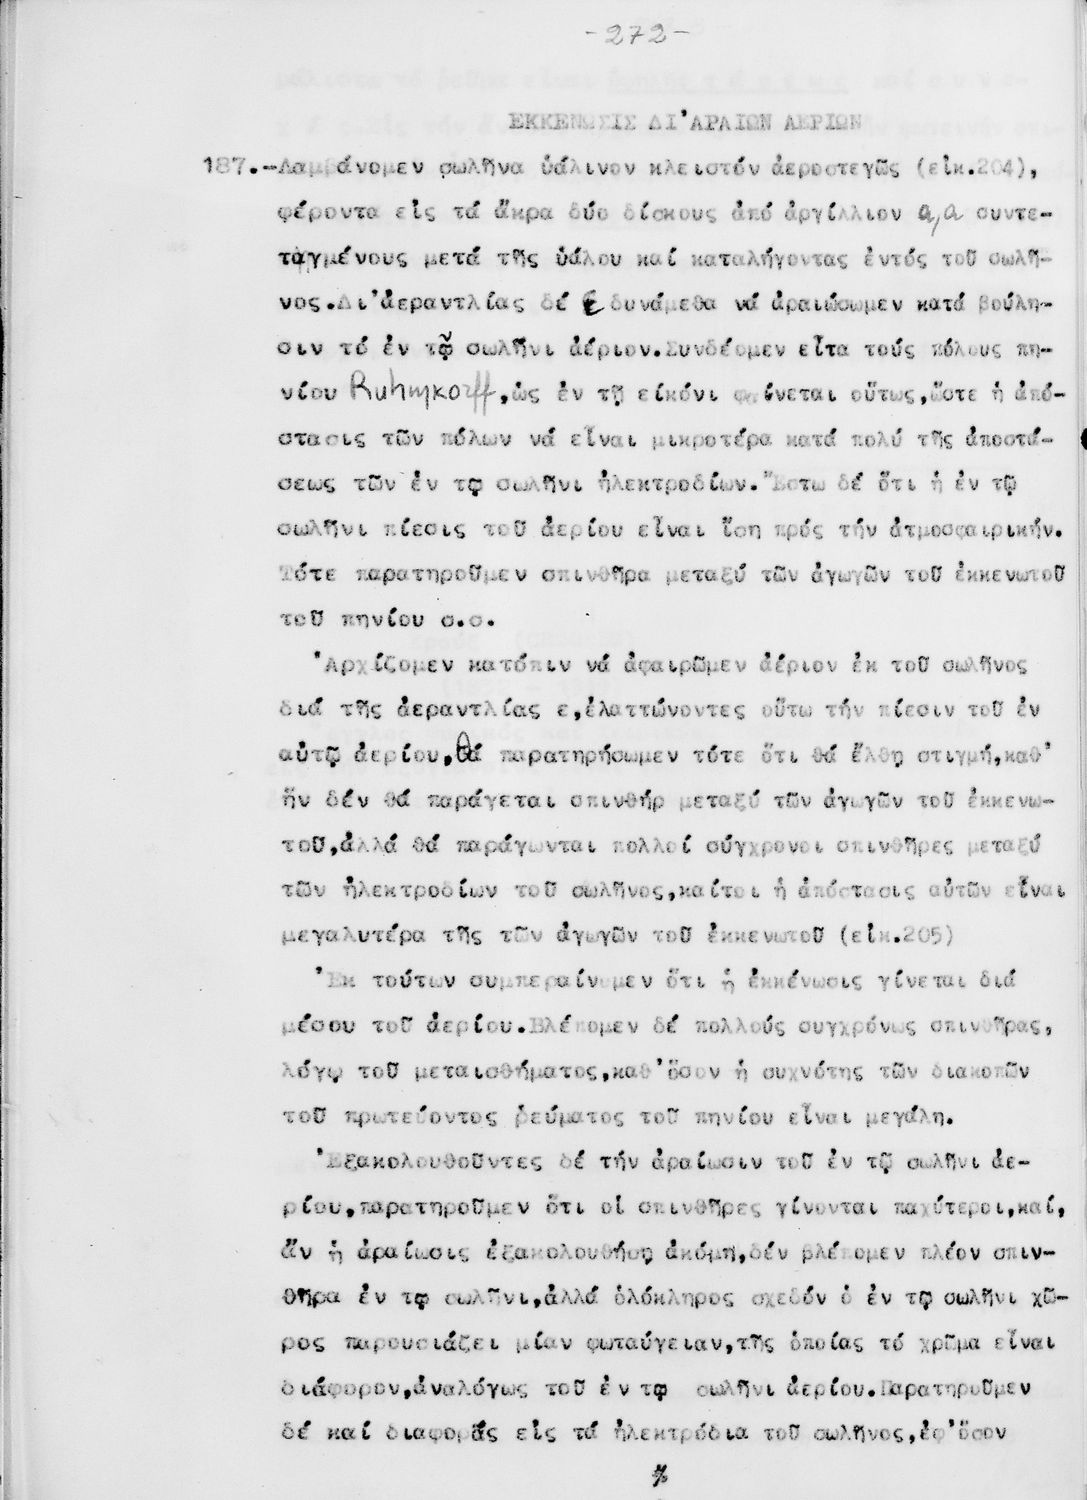 -272-
ΕΚΚΕΝΩΣΙΣ ΔΙ'ΑΡΑΙΩΝ ΑΕΡΙΩΝ
187.-Λαμβάνομεν σωλῆνα ὑάλινον κλειστόν ἀεροστεγῶς (εἰκ.204),
φέροντα εἰς τά ἄκρα δύο δίσκους ἀπό ἀργίλλιον a,a συντε-
ταγμένους μετά τῆς ὑάλου καί καταλήγοντας ἐντός τοῦ σωλῆ-
νος.Δι'ἀεραντλίας δέ ε δυνάμεθα νά ἀραιώσωμεν κατά βούλη-
σιν τό ἐν τῷ σωλῆνι ἀέριον.Συνδέομεν εἶτα τούς πόλους πη-
νίου Ruhmkorff,ὡς ἐν τῇ εἰκόνι φαίνεται οὕτως,ὥστε ἡ ἀπό-
στασις τῶν πόλων νά εἶναι μικροτέρα κατά πολύ τῆς ἀποστά-
σεως τῶν ἐν τῳ σωλῆνι ἠλεκτροδίων.Ἔστω δέ ὅτι ἡ ἐν τῷ
σωλῆνι πίεσις τοῦ ἀερίου εἶναι ἴση πρός τήν ἀτμοσφαιρικήν.
Τότε παρατηροῦμεν σπινθῆρα μεταξύ τῶν ἀγωγῶν τοῦ ἐκκενωτοῦ
τοῦ πηνίου σ.σ.
Ἀρχίζομεν κατόπιν νά ἀφαιρῶμεν ἀέριον ἐκ τοῦ σωλῆνος
διά τῆς ἀεραντλίας ε,ἐλαττώνοντες οὕτω τήν πίεσιν τοῦ ἐν
αὐτῷ ἀερίου,θά παρατηρήσωμεν τότε ὅτι θά ἔλθῃ στιγμή,καθ'
ἥν δέν θά παράγεται σπινθήρ μεταξύ τῶν ἀγωγῶν τοῦ ἐκκενω-
τοῦ,ἀλλά θά παράγωνται πολλοί σύγχρονοι σπινθῆρες μεταξύ
τῶν ἠλεκτροδίων τοῦ σωλῆνος,καίτοι ἡ ἀπόστασις αὐτῶν εἶναι
μεγαλυτέρα τῆς τῶν ἀγωγῶν τοῦ ἐκκενωτοῦ (εἰκ.205)
Ἐκ τούτων συμπεραίνομεν ὅτι ἡ ἐκκένωσις γίνεται διά
μέσου τοῦ ἀερίου.Βλέπομεν δέ πολλούς συγχρόνως σπινθῆρας,
λόγῳ τοῦ μεταισθήματος,καθ'ὅσον ἡ συχνότης τῶν διακοπῶν
τοῦ πρωτεύοντος ῥεύματος τοῦ πηνίου εἶναι μεγάλη.
Ἐξακολουθοῦντες δέ τήν ἀραίωσιν τοῦ ἐν τῷ σωλῆνι ἀε-
ρίου,παρατηροῦμεν ὅτι οἱ σπινθῆρες γίνονται παχύτεροι,καί,
ἄν ἡ ἀραίωσις ἐξακολουθήσῃ ἀκόμη,δέν βλέπομεν πλέον σπιν-
θῆρα ἐν τῳ σωλῆνι,ἀλλά ὁλόκληρος σχεδόν ὁ ἐν τῳ σωλῆνι χῶ-
ρος παρουσιάζει μίαν φωταύγειαν,τῆς ὁποίας τό χρῶμα εἶναι
διάφορον,ἀναλόγως τοῦ ἐν τῳ σωλῆνι ἀερίου.Παρατηροῦμεν
δέ καί διαφοράς εἰς τά ἠλεκτρόδια τοῦ σωλῆνος,ἐφ'ὅσον